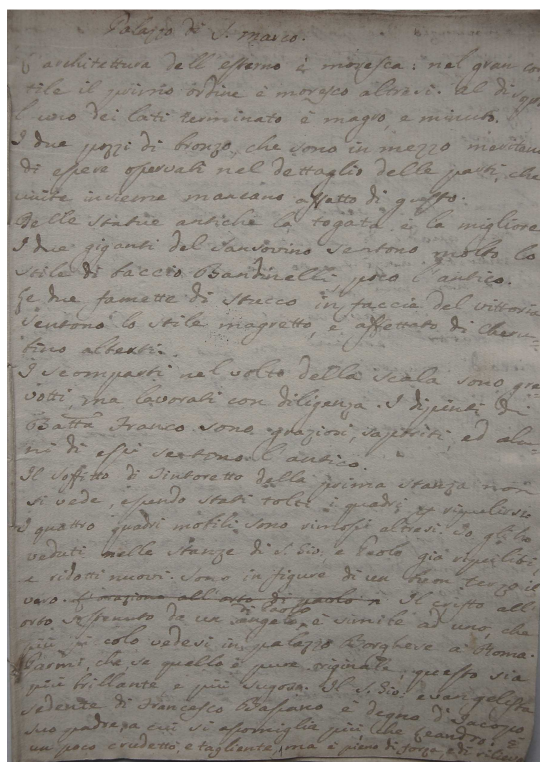 Palazzo di S. Marco.
L'architettura dell'esterno è moresca: nel gran cor
tile il primo ordine è moresco altresì. Al di sopra
l'uno dei lati terminato è magro, e minuto.
I due pozzi di bronzo, che sono in mezzo meritano
di essere osservati nel dettaglio delle parti, che
unite insieme mancano affatto di gusto.
Delle statue antiche la togata è la migliore
I due giganti del Sansovino sentono molto lo
stile di Baccio Bandinelli, poco l'antico.
Le due famette di stucco in faccia del Vittoria
sentono lo stile magretto, e affettato di Cheru-
bino Alberti.
I scomparti nel volto della scala sono
ma lavorati con diligenza. I dipinti di
Batta Franco sono graziosi, saporiti, ed alcu-
ni di essi sentono l'antico.
Il soffitto di Tintoretto della prima stanza non
si vede, essendo stati tolti i quadri pr ripulirsi
I quattro quadri mobili sono rimossi altresì. Io gli ho
veduti nelle stanze di S. Gio. e Paolo già ripuliti,
e ridotti nuovi. Sono in figure di un buon terzo il
vero. L'orazione all'orto di Paolo Il Cristo all'
orto sostenuto da un Angelo di Paolo è simile ad uno, che
più in piccolo vedesi in palazzo Borghese a Roma.
Parmi, che se quello è pure originale, questo sia
più brillante e più sugoso. Il S. Gio. evangelista
sedente di Francesco Bassano è degno di Jacopo
suo padre, a cui si assomiglia più, che Leandro: è
un poco crudetto, e tagliente, ma è pieno di forza, e di rilievo